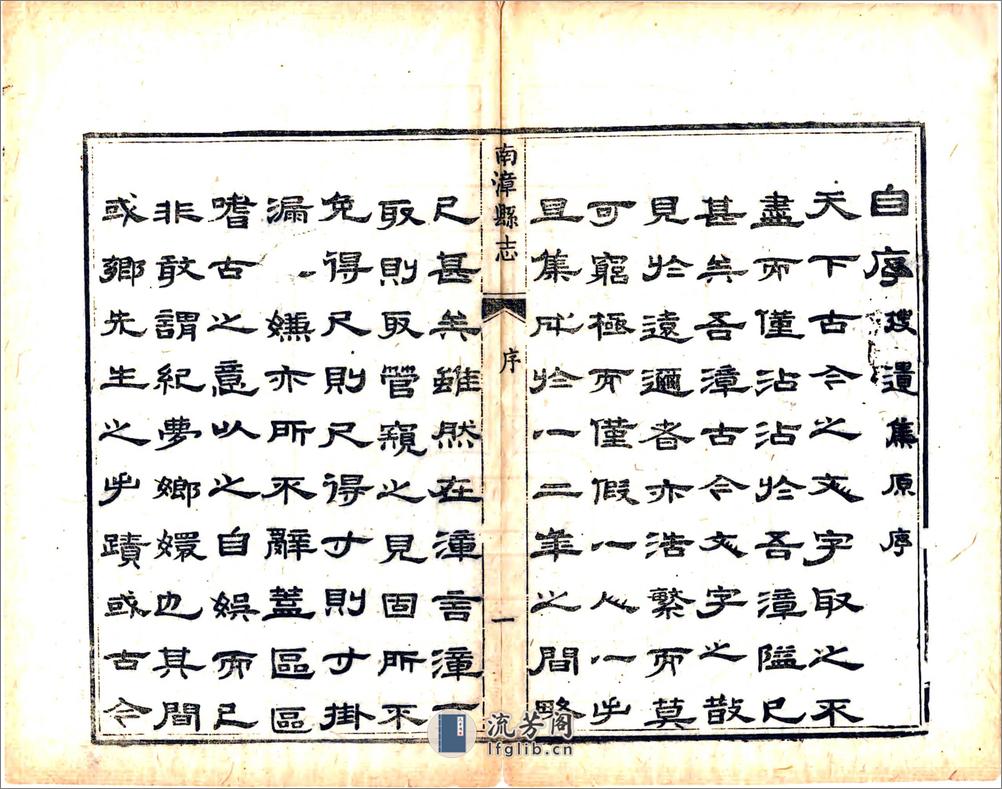 自序 搜遺集原序
天下古今之文字取之不
盡而僅沾沾於吾漳隘已
甚矣吾漳古今文字之散
見於遠邇者亦浩繁而莫
可窮極而僅假一人一手
且集成於一二年之間略
南漳縣志 序 一
已甚矣雖然在漳言漳一
取則取管窺之見固所不
免得尺則尺得寸則寸掛
漏之嫌亦所不辭蓋區區
嗜古之意以之自娛而已
非敢謂紀夢嫏嬛也其間
或鄉先生之手蹟或古今
流芳阁
lfglib.cn